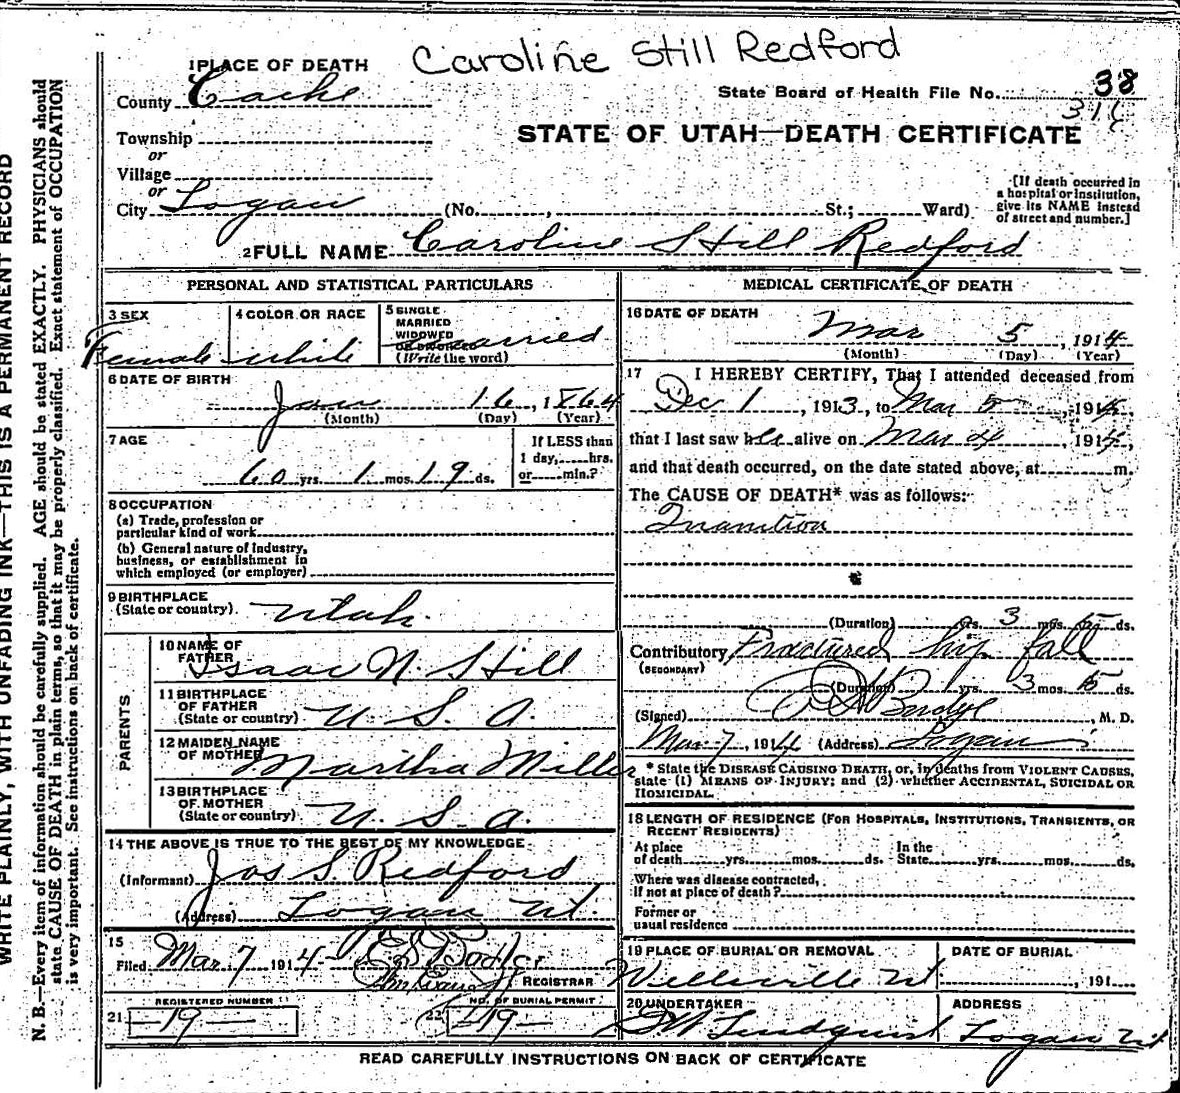 Caroline Still Redford
1 PLACE OF DEATH
County Cache
State Board of Health File No. 38
STATE OF UTAH—DEATH CERTIFICATE
Township
or
Village
or
City Logan (No. , St.; Ward)
[If death occurred in
a hospital or institution,
give its NAME instead
of street and number.]
2 FULL NAME Caroline Still Redford
PERSONAL AND STATISTICAL PARTICULARS
3 SEX
Female
4 COLOR OR RACE
white
5 SINGLE
MARRIED
WIDOWED
OR DIVORCED
(Write the word)
married
6 DATE OF BIRTH
Jan 16, 1864
(Month) (Day) (Year)
7 AGE
60 yrs. 1 mos. 19 ds.
If LESS than
1 day, hrs.
or min.?
8 OCCUPATION
(a) Trade, profession or
particular kind of work
(b) General nature of industry,
business, or establishment in
which employed (or employer)
9 BIRTHPLACE
(State or country) Utah.
PARENTS
10 NAME OF
FATHER Isaac N. Still
11 BIRTHPLACE
OF FATHER
(State or country) U. S. A.
12 MAIDEN NAME
OF MOTHER Martha Miller
13 BIRTHPLACE
OF MOTHER
(State or country) U. S. A.
14 THE ABOVE IS TRUE TO THE BEST OF MY KNOWLEDGE
(Informant) Jos S. Redford
(Address) Logan Ut.
15
Filed Mar 7 1914
REGISTRAR
REGISTERED NUMBER
21 —19—
NO. OF BURIAL PERMIT
22 —19—
MEDICAL CERTIFICATE OF DEATH
16 DATE OF DEATH
Mar 5, 1914
(Month) (Day) (Year)
17 I HEREBY CERTIFY, That I attended deceased from
Dec 1, 1913, to Mar 5, 1914,
that I last saw her alive on Mar 4, 1914,
and that death occurred, on the date stated above, at m.
The CAUSE OF DEATH* was as follows:
Inanition
(Duration) yrs. 3 mos. 5 ds.
Contributory Fractured hip fall
(SECONDARY)
(Duration) yrs. 3 mos. 5 ds.
(Signed) , M. D.
Mar 7, 1914 (Address) Logan
* State the DISEASE CAUSING DEATH, or, in deaths from VIOLENT CAUSES,
state (1) MEANS OF INJURY; and (2) whether ACCIDENTAL, SUICIDAL OR
HOMICIDAL.
18 LENGTH OF RESIDENCE (FOR HOSPITALS, INSTITUTIONS, TRANSIENTS, OR
RECENT RESIDENTS)
At place
of death yrs. mos. ds.
In the
State yrs. mos. ds.
Where was disease contracted,
if not at place of death?
Former or
usual residence
19 PLACE OF BURIAL OR REMOVAL
Wellsville Ut
DATE OF BURIAL
, 191
20 UNDERTAKER
Lindquist
ADDRESS
Logan Ut
READ CAREFULLY INSTRUCTIONS ON BACK OF CERTIFICATE
WRITE PLAINLY, WITH UNFADING INK—THIS IS A PERMANENT RECORD
N. B.—Every item of information should be carefully supplied. AGE should be stated EXACTLY. PHYSICIANS should
state CAUSE OF DEATH in plain terms, so that it may be properly classified. Exact statement of OCCUPATION
is very important. See instructions on back of certificate.